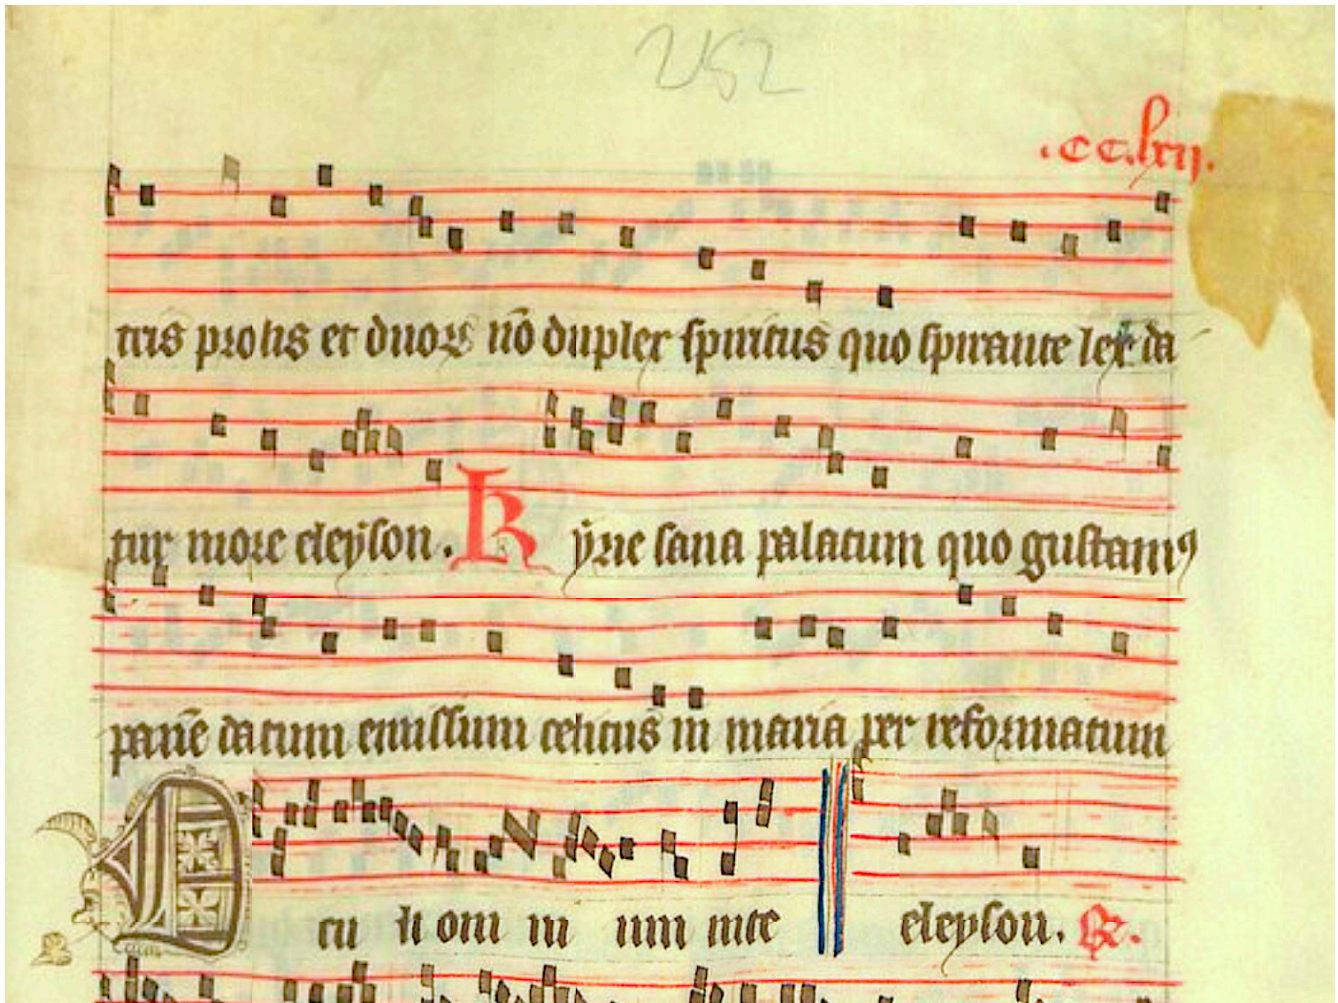 252
.cc.lxii.
tris prolis et duorꝝ nō duplex spiritus quo spirante lex da
tur more eleyson. Kyrie sana palatum quo gustamꝰ
panē datum emissum celitus in maria per reformatum
eleyson.